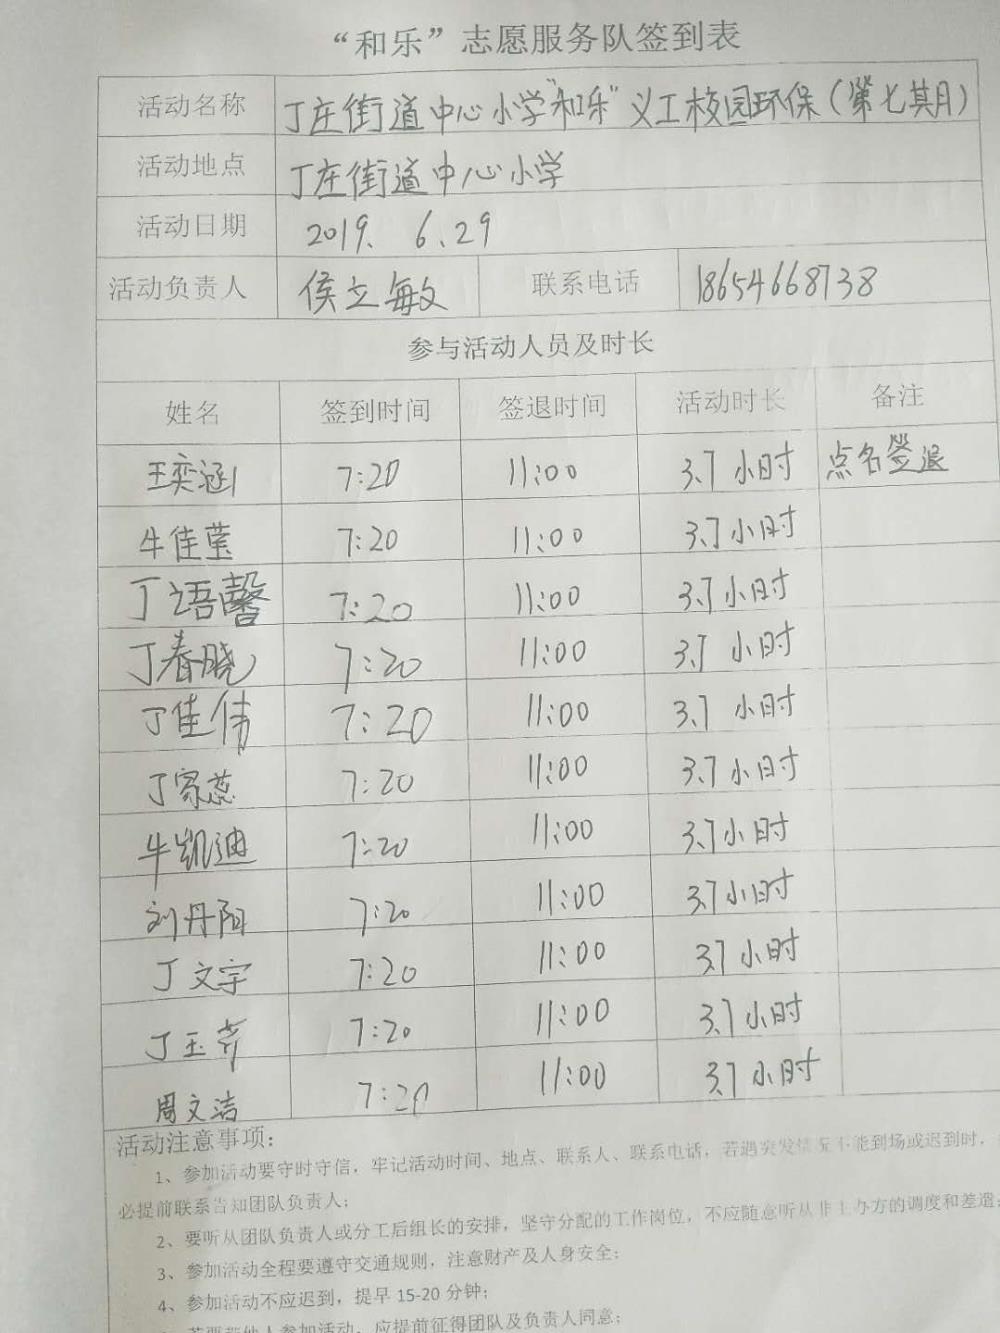 “和乐”志愿服务队签到表
活动名称 丁庄街道中心小学“和乐”义工校园环保（第七期月）
活动地点 丁庄街道中心小学
活动日期 2019. 6.29
活动负责人 侯立敏 联系电话 18654668738
参与活动人员及时长
姓名 签到时间 签退时间 活动时长 备注
王奕涵 7:20 11:00 3.7小时 点名签退
牛佳莹 7:20 11:00 3.7小时
丁语馨 7:20 11:00 3.7小时
丁春晓 7:20 11:00 3.7小时
丁佳伟 7:20 11:00 3.7小时
丁家蕊 7:20 11:00 3.7小时
牛凯迪 7:20 11:00 3.7小时
刘丹阳 7:20 11:00 3.7小时
丁文宇 7:20 11:00 3.7小时
丁玉 7:20 11:00 3.7小时
周文洁 7:20 11:00 3.7小时
活动注意事项：
1、参加活动要守时守信，牢记活动时间、地点、联系人、联系电话，若遇突发情况不能到场或迟到时，
必提前联系告知团队负责人；
2、要听从团队负责人或分工后组长的安排，坚守分配的工作岗位，不应随意听从非主办方的调度和差遣；
3、参加活动全程要遵守交通规则，注意财产及人身安全；
4、参加活动不应迟到，提早 15-20 分钟；
人参加活动，应提前征得团队及负责人同意；